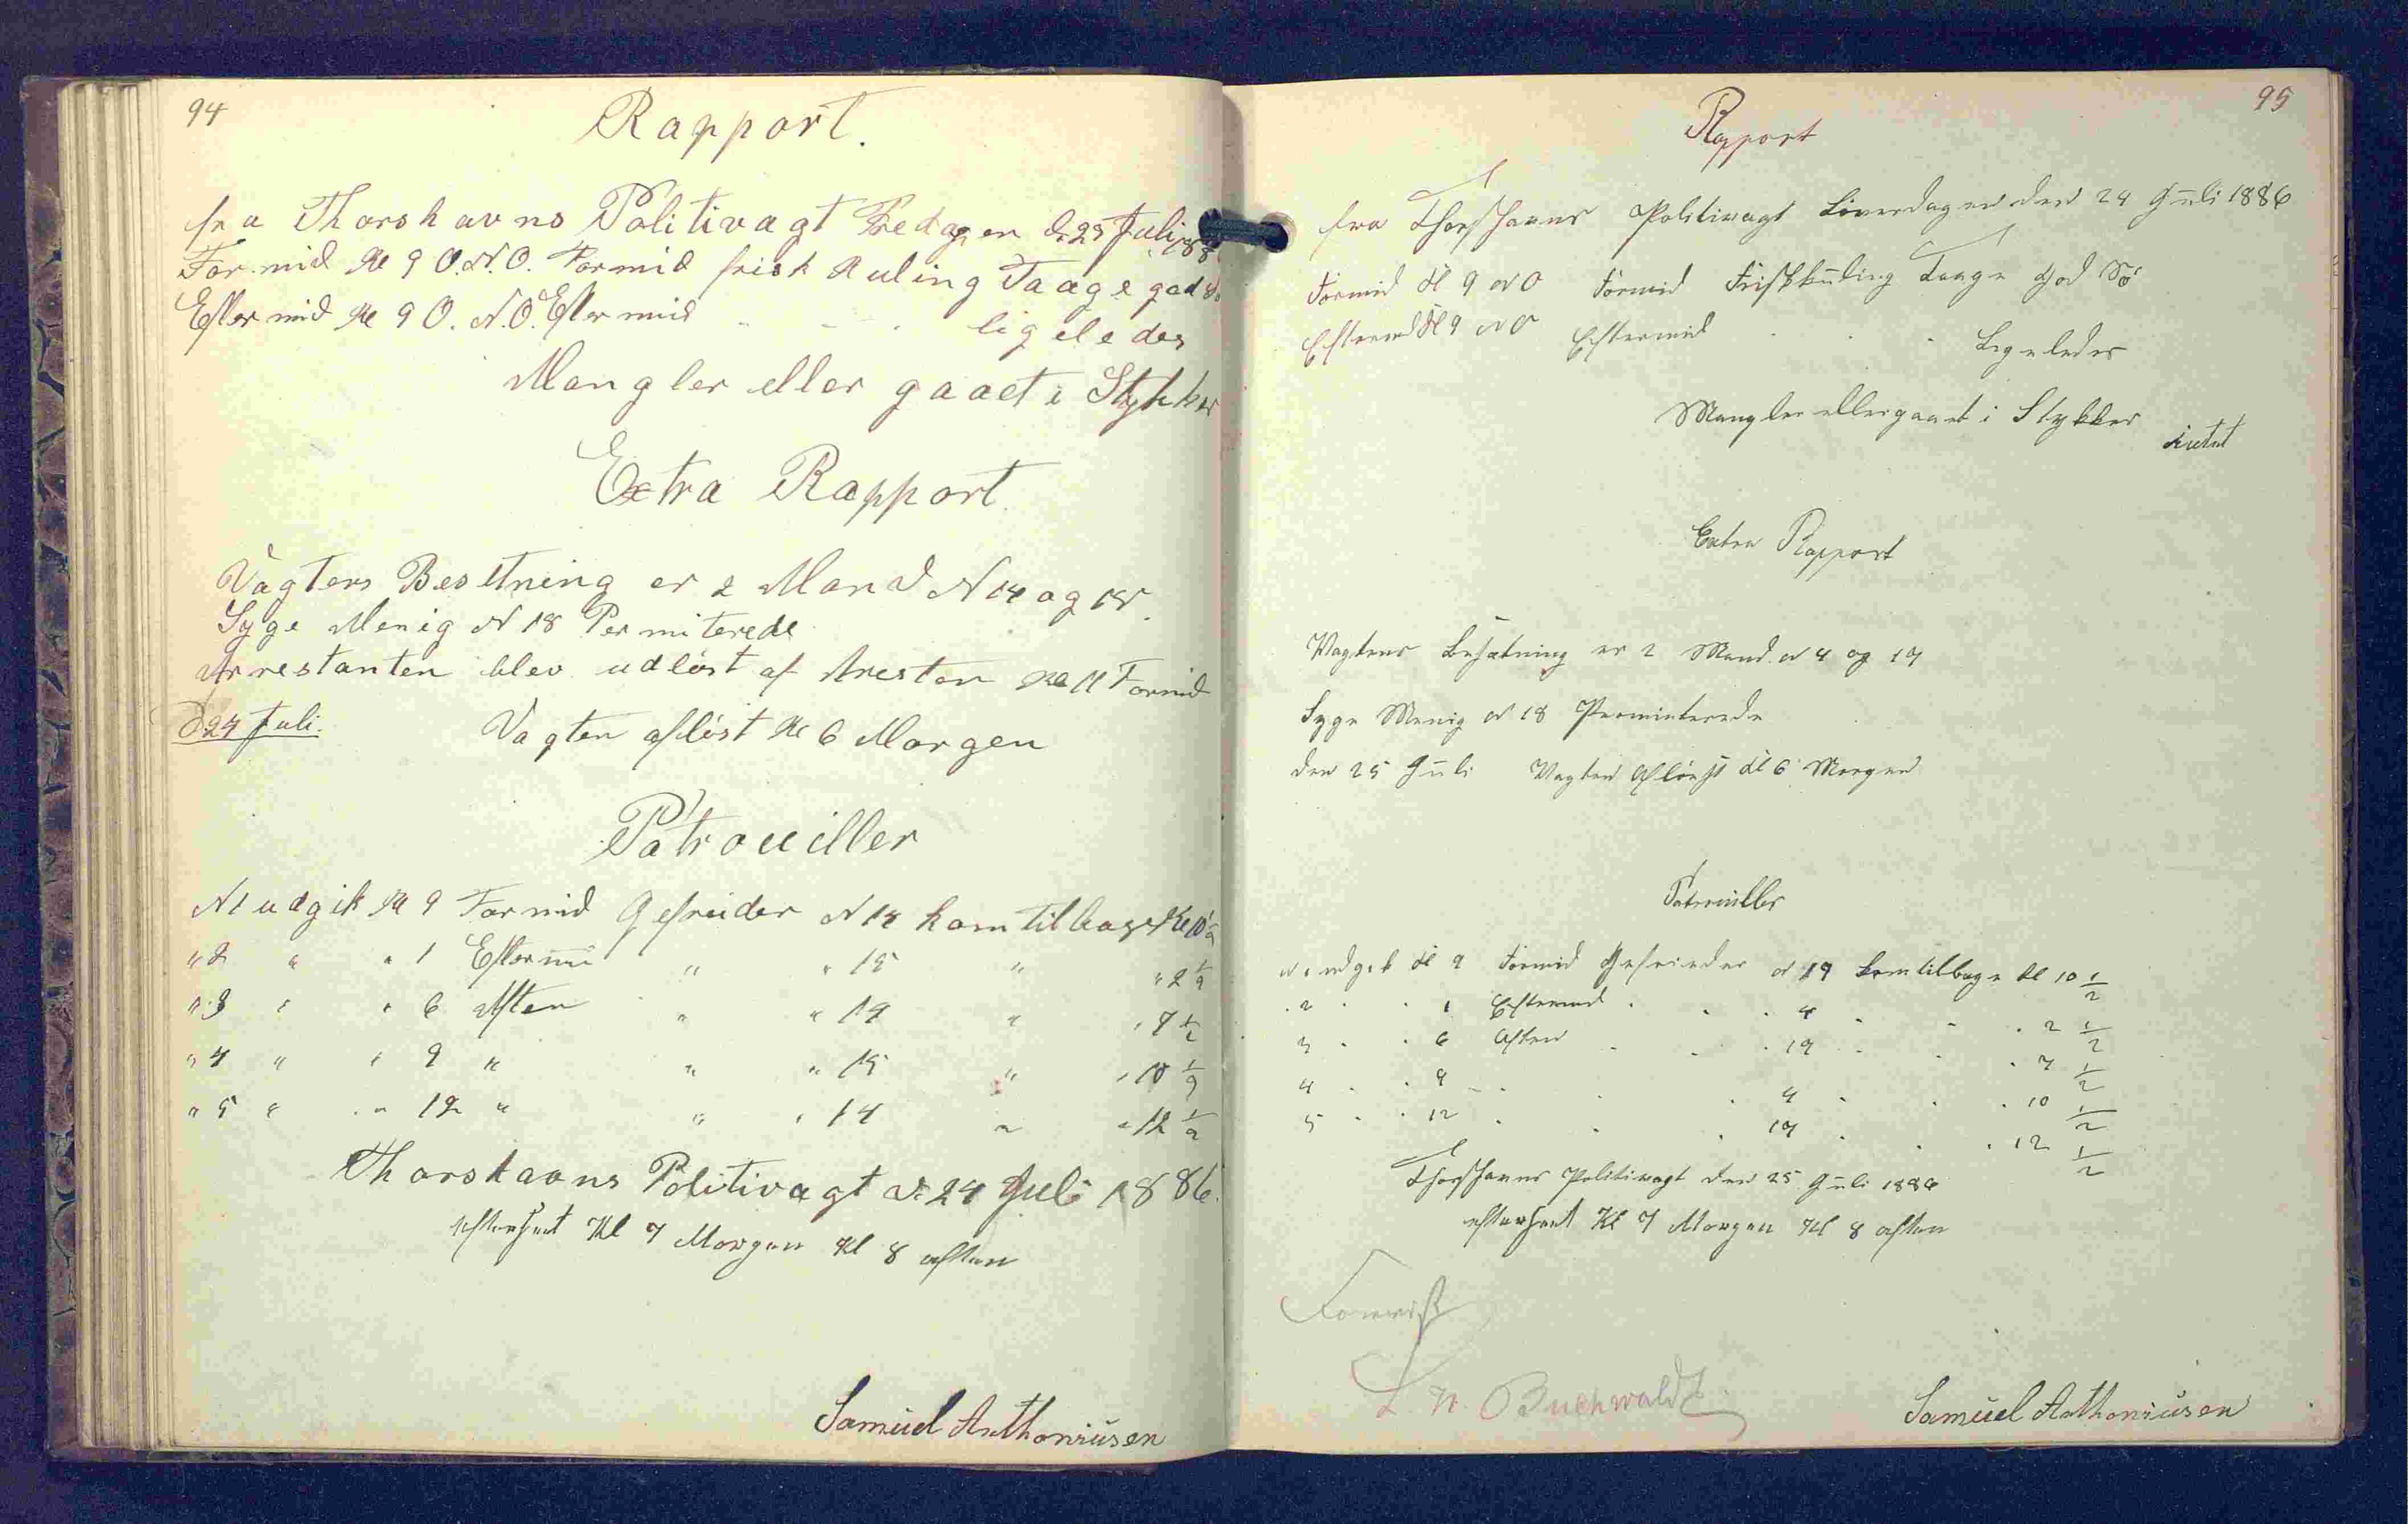 94
Rapport.
fra Thorshavns Politivagt Fredagen d. 23 Juli 188
Formid Kl 9 O.N.O. Formid frisk Kuling Taage god Sø
Eftermid Kl 9 O.N.O. Eftermid " - . ligeledes
Mangler eller gaaet i Stykker
Extra Rapport
Vagtens Besetning er 2 Mand N 14 og 15.
Syge Menig N 18 Permiterede
Arrestanten blev udløst af Aresten Kl 11 Formid
d 24 Juli. Vagten afløst Kl 6 Morgen
Patrouiller
N 1 udgik Kl 9 Formid Gefreider N 14 kom tilbage Kl 10 1/2
" 2 " " 1 Eftermi " " 15 " " 2 1/2
" 3 " " 6 Aften " " 14 " " 7 1/2
" 4 " " 9 " " " 15 " " 10 1/2
" 5 " " 12 " " " 14 " " 12 1/2
Thorshavns Politivagt d. 24 Juli 1886.
efterseet Kl 7 Morgen Kl 8 aften
Samuel Anthoniusen
95
Rapport
fra Thorshavns Politivagt Løverdagen den 24 Juli 1886
Formid Kl 9 NO Formid Frisk Kuling Taage God Sø
Eftermd Kl 9 NO Eftermid . . . Ligeledes
Mangler eller gaaet i Stykker Intet
Extra Rapport
Vagtens Besætning er 2 Mand N 4 og 14
Syge Menig N 18 Perminterede
den 25 Juli Vagten Afløst Kl 6 Morgen
Patrouiller
N 1 udgik Kl 9 Formid Gefreider N 14 kom tilbage Kl 10 1/2
. 2 . . 1 Eftermd . . . 4 . . . 2 1/2
3 . . 6 Aften . . . 14 . . . 7 1/2
4 . . 9 - . . 4 . . . 10 1/2
5 . . 12 . . . 14 . . . 12 1/2
Thorshavns Politivagt den 25 Juli 1886
efterseet Kl 7 Morgen Kl 8 aften
Forevist
L N. Buchwaldt
Samuel Anthoniusen